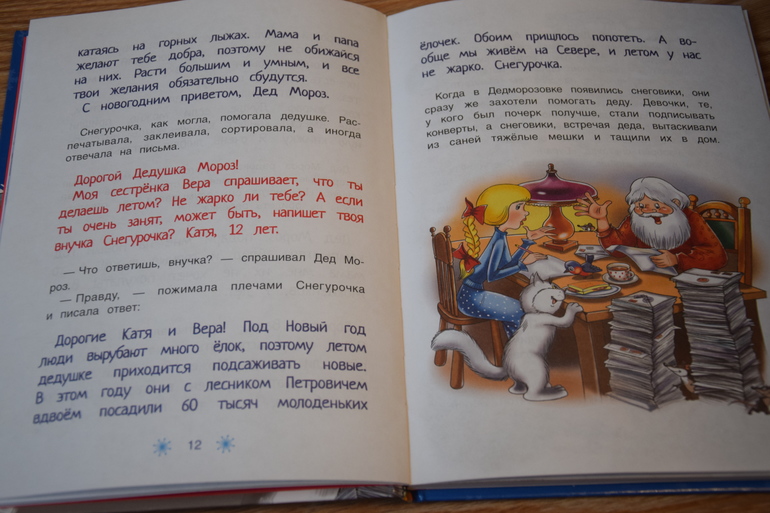 катаясь на горных лыжах. Мама и папа
желают тебе добра, поэтому не обижайся
на них. Расти большим и умным, и все
твои желания обязательно сбудутся.
С новогодним приветом, Дед Мороз.
Снегурочка, как могла, помогала дедушке. Рас-
печатывала, заклеивала, сортировала, а иногда
отвечала на письма.
Дорогой Дедушка Мороз!
Моя сестрёнка Вера спрашивает, что ты
делаешь летом? Не жарко ли тебе? А если
ты очень занят, может быть, напишет твоя
внучка Снегурочка? Катя, 12 лет.
— Что ответишь, внучка? — спрашивал Дед Мо-
роз.
— Правду, — пожимала плечами Снегурочка
и писала ответ:
Дорогие Катя и Вера! Под Новый год
люди вырубают много ёлок, поэтому летом
дедушке приходится подсаживать новые.
В этом году они с лесником Петровичем
вдвоём посадили 60 тысяч молоденьких
12
ёлочек. Обоим пришлось попотеть. А во-
обще мы живём на Севере, и летом у нас
не жарко. Снегурочка.
Когда в Дедморозовке появились снеговики, они
сразу же захотели помогать деду. Девочки, те,
у кого был почерк получше, стали подписывать
конверты, а снеговики, встречая деда, вытаскивали
из саней тяжёлые мешки и тащили их в дом.